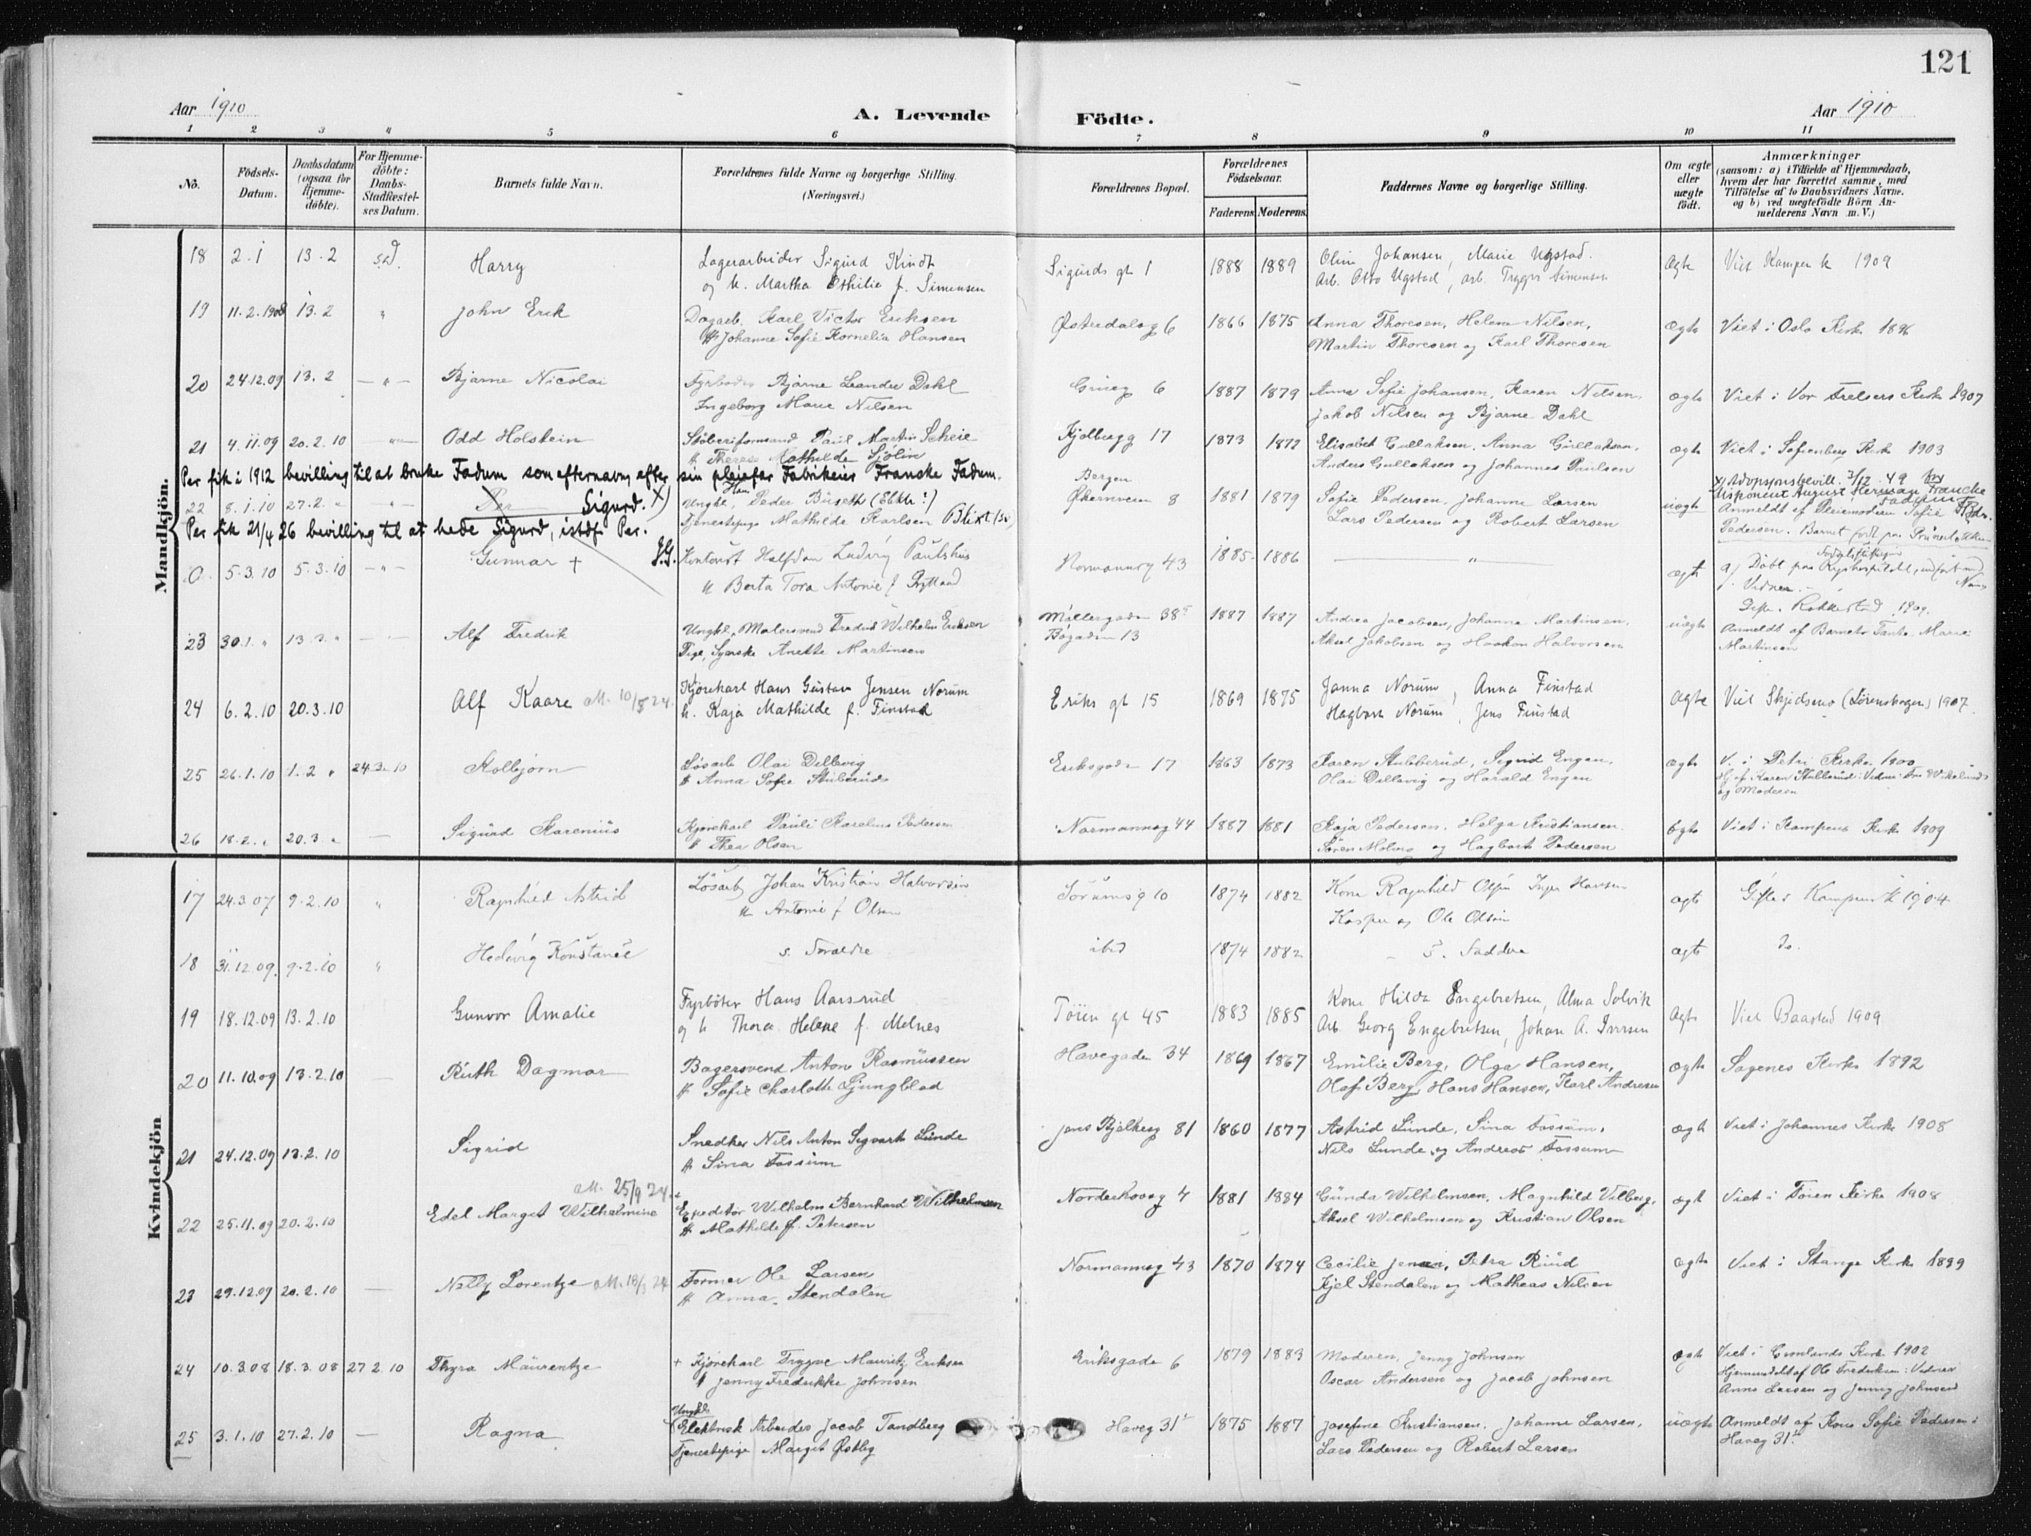 121
Aar 1910 A. Levende Födte. Aar 1910
1 2 3 4 5 6 7 8 9 10 11
No.
Födsels-Datum.
Daabsdatum (ogsaa for Hjemme-döbte).
For Hjemme-döbte: Daabs-Stadfæstel-ses Datum.
Barnets fulde Navn.
Forældrenes fulde Navne og borgerlige Stilling.
(Næringsvei.)
Forældrenes Bopæl.
Forældrenes Födselsaar.
Faderens. Moderens.
Faddernes Navne og borgerlige Stilling.
Om ægte eller uægte födt.
Anmærkninger
(saasom: a) i Tilfælde af Hjemmedaab, hvem der har forrettet samme, med Tilföielse af to Daabsvidners Navne. og b) ved uægtefödte Börn An-melderens Navn m. V.)
Mandkjön.
18 2.1 13.2 Harry Lagerarbeider Sigurd Kindt Sigurds gt 1 1888 1889 Oline Johansen, Marie Ugstad. Ægte Viet Kampen k 1909
og h. Martha Othilie f. Simensen Arb. Otto Ugstad, arb. Trygve Simensen
19 11.2.1908 13.2 " John Erik Dagarb. Karl Victor Eriksen Østerdalsg 6 1866 1875 Anna Thoresen, Helene Nilsen, ægte Viet i Oslo Kirke 1896
H Johanne Sofie Kornelia Hansen Martin Thoresen og Karl Thoresen
20 24.12.09 13.2 — " — Bjarne Nicolai Fyrböder Bjarne Leander Dahl Grüeg 6 1887 1879 Anna Sofie Johansen, Karen Nilsen, ægte Viet i Vor Frelsers Kirke 1907
Ingeborg Marie Nilsen Jakob Nilsen og Bjarne Dahl
21 4.11.09 20.2.10 Odd Holstein Støberiformand Paul Martin Scheie Kjølbergg 17 1873 1872 Elisabet Gullaksen, Anna Gullaksen, ægte Viet i Sofienberg Kirke 1903
H Therese Mathilde Sjölin Anders Gullaksen og Johannes Paulsen
Per fik i 1912 bevilling til at bruke Fadum som efternavn efter sin pleiefar Fabrikeier Francke Fadum.
22 8.1.10 27.2. Per Sigurd. x) Ungkl. Peder Büseth (Elktr:) Bergen Økernveien 8 1881 1879 Sofie Pedersen, Johanne Larsen uægte x) Adopsjonsbevill. 3/12 49 for Disponent August Herman Francke Fadum
Tjenestepige Mathilde Karlsen Lars Pedersen og Robert Larsen Anmeldt af Pleiemoderen Sofie Pedersen. Barnet født paa Grünerløkken
Per fik 21/4 26 bevilling til at hede Sigurd, istdf. Per. J.G.
0 5.3.10 5.3.10 — " — Gunnar + Kontorist Halfdan Ludvig Paulshus Normannsg 43 1885 1886 — " — ægte
H Berta Tora Antonie f. Rytland
23 30.1. " 13.3. " Alf Fredrik Ungkl. Malersvend Fredrik Wilhelm Eriksen Møllergaden 38 1887 1887 Andrea Jacobsen, Johanne Martinsen. uægte Diss. Rakkestad 1909.
Pige, Syerske Anette Martinsen Bøgaden 13 Aksel Jakobsen og Haakon Halvorsen Anmeldt af Barnets Tante. Marie Martinsen
24 6.2.10 20.3.10 Alf Kaare att. 10/5 24. Kjørekarl Hans Gustav Jensen Norum Eriks gt 15 1869 1875 Janna Norum, Anna Finstad Ægte Viet Skjedsmo (Lörenskogen) 1907
h. Kaja Mathilde f. Finstad Hagbart Norum, Jens Finstad
25 26.1.10 1.2 " 24.3.10 Kolbjørn Løsarb Olai Dillevig Eriksgaden 17 1863 1873 Karen Stubberud, Sigrid Engen, ægte V. i Petri Kirke 1900
H Anna Sofie Stuberud Olai Dillevig og Harald Engen og Moderen
26 18.2. " 20.3. " — Sigurd Karenius Kjørekarl Pauli Karelius Pedersen Normannsg 44 1887 1881 Kaja Pedersen, Helga Kristiansen ægte Viet i Kampens Kirke 1909
H Thea Olsen Søren Molnes og Hagbart Pedersen
Kvindekjön
17 24.3.07 9.2.10 " Ragnhild Astrid Løsarb Johan Kristian Halvorsen Sörumsg 10 1874 1882 Kone Ragnhild Olsen Inger Hansen ægte Giftet Kampens k 1904
H Antonie f Olsen Kasper og Ole Olsen
18 31.12.09. 9.2.10 " Hedevig Konstance s. Foraldre ibd 1874 1882 — s. Faddere ægte Do.
19 18.12.09 13.2.10 Gunvor Amalie Fyrböter Hans Aarsrud Töien gt 45 1883 1885 Kone Hilda Engebretsen, Alma Solvik Ægte Viet Baastad 1909
og h Thora Helene f. Melnes Arb. Georg Engebretsen, Johan A. Iversen
20 11.10.09 13.2.10 — Ruth Dagmar Bagersvend Anton Rasmussen Havegaden 34 1869 1867 Emilie Berg, Olga Hansen, ægte Sagenes Kirke 1892
H Sofie Charlotte Ljungblad Olaf Berg, Hans Hansen, Karl Andresen
21 24.12.09 13.2.10 Sigrid Snedker Nils Anton Sigvart Lunde Jens Bjelkesg 81 1860 1877 Astrid Lunde, Sina Fossum, ægte Viet i Johannes Kirke 1908
H Sina Fossum Nils Lunde og Andreas Fossum
att. 25/9 24
22 25.11.09 20.2.10 Edel Margit Wilhelmine Expeditør Wilhelm Bernhard Wilhelmsen Norderhovsg 4 1881 1884 Gunda Wilhelmsen, Magnhild Vilberg, ægte Viet i Tøien Kirke 1908
H Mathilde f. Petersen Aksel Wilhelmsen og Kristian Olsen
23 29.12.09 20.2.10 — Nelly Lorentze att. 18/3 24 Former Ole Larsen Normannsg 43 1870 1874 Cecilie Jensen, Petra Ruud ægte Viet i Stange Kirke 1899
H Anna Stendalen Kjel Stendalen og Mathias Nilsen
24 10.3.08 18.3.08 27.2.10 Thyra Maurentze + Kjørekarl Trygve Mauritz Eriksen Eriksgade 6 1879 1883 Moderen, Jenny Johnsen ægte Viet i Grønlands Kirke 1902
H Jenny Fredrikke Johnsen Oscar Andersen og Jacob Johnsen Hjemmedöbt af Ole Fredriksen: Vidner Anna Larsen og Jenny Johnsen
25 3.1.10 27.2.10 — Ragna Ungkl. Elektrisk Arbeider Jacob Tandberg Haveg 31 1875 1887 Josefine Kristiansen, Johanne Larsen, uægte Anmeldt af Kone Sofie Pedersen:
Tjenestepige Margit Østby Lars Pedersen og Robert Larsen Haveg 31